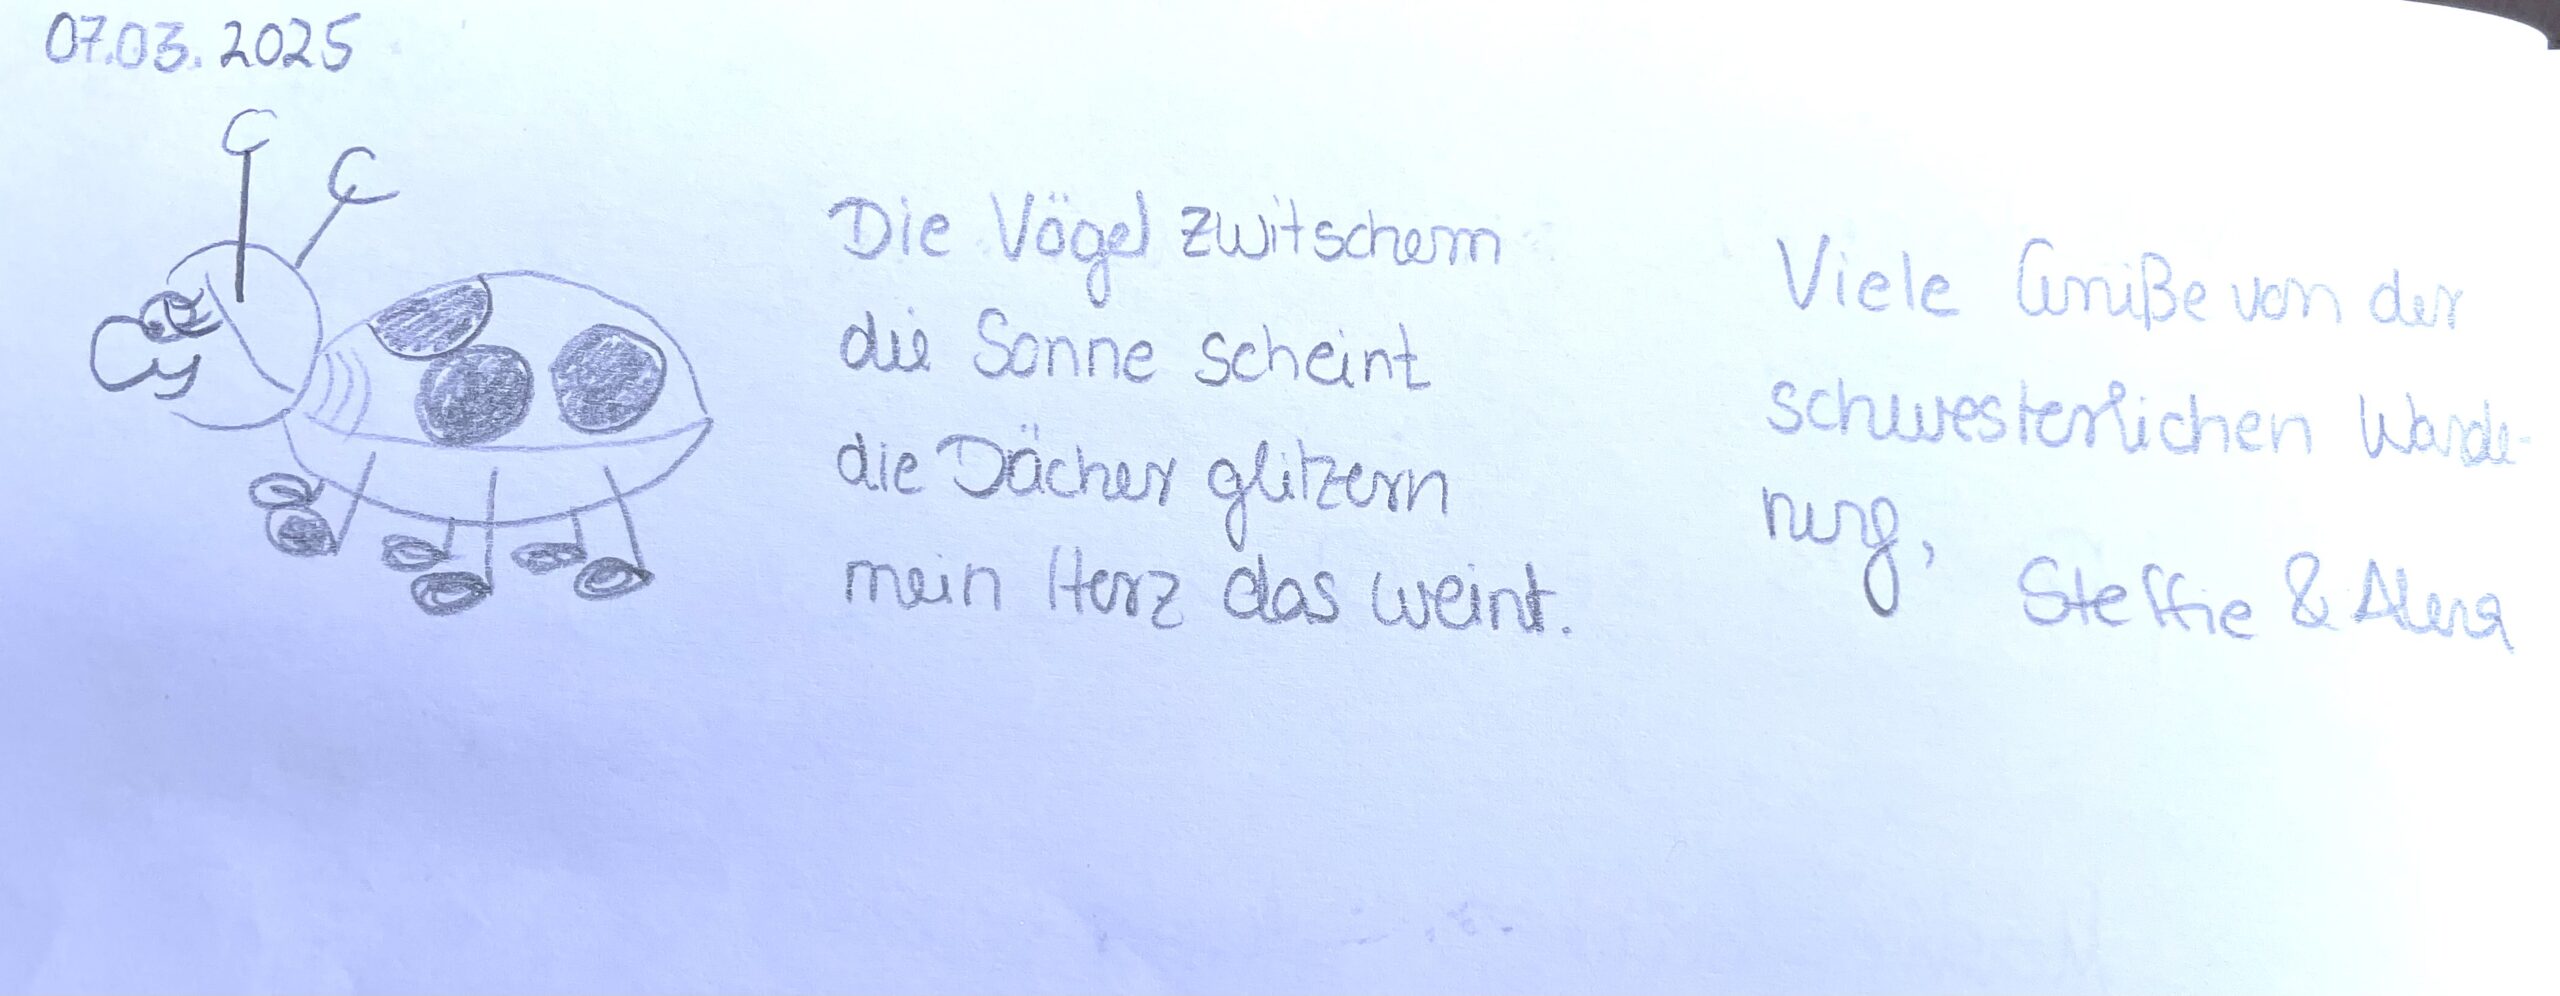 07.03.2025
Die Vögel zwitschern
die Sonne scheint
die Dächer glitzern
mein Herz das weint.
Viele Grüße von der
schwesterlichen Wande-
rung,
Steffie & Alena